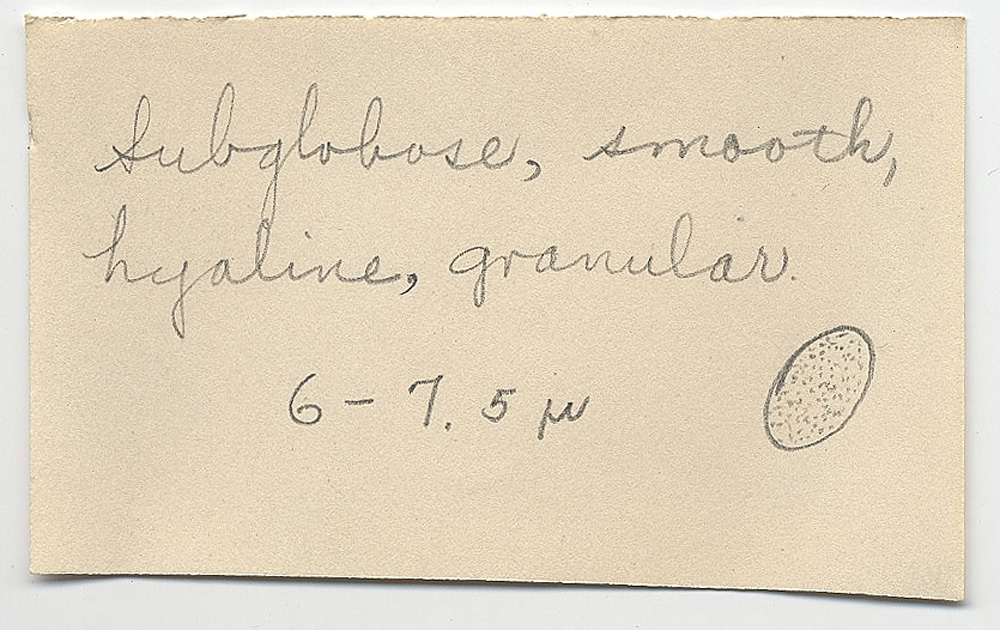 Subglobose, smooth,
hyaline, granular.
6 - 7.5 μ